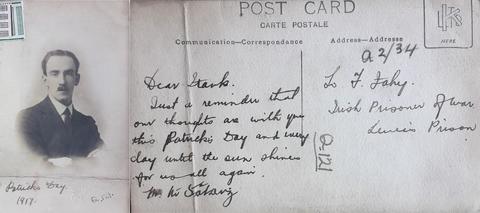 Patrick's Day
1917.
POST CARD
CARTE POSTALE
Communication—Correspondence
Address—Addresse
HERE
Q 2/34
Dear Frank.
Just a reminder that
our thoughts are with you
this Patrick's Day and every
day until the sun shines
for us all again.
To F. Fahy.
Irish Prisoner of war
Lewes Prison
Q.121